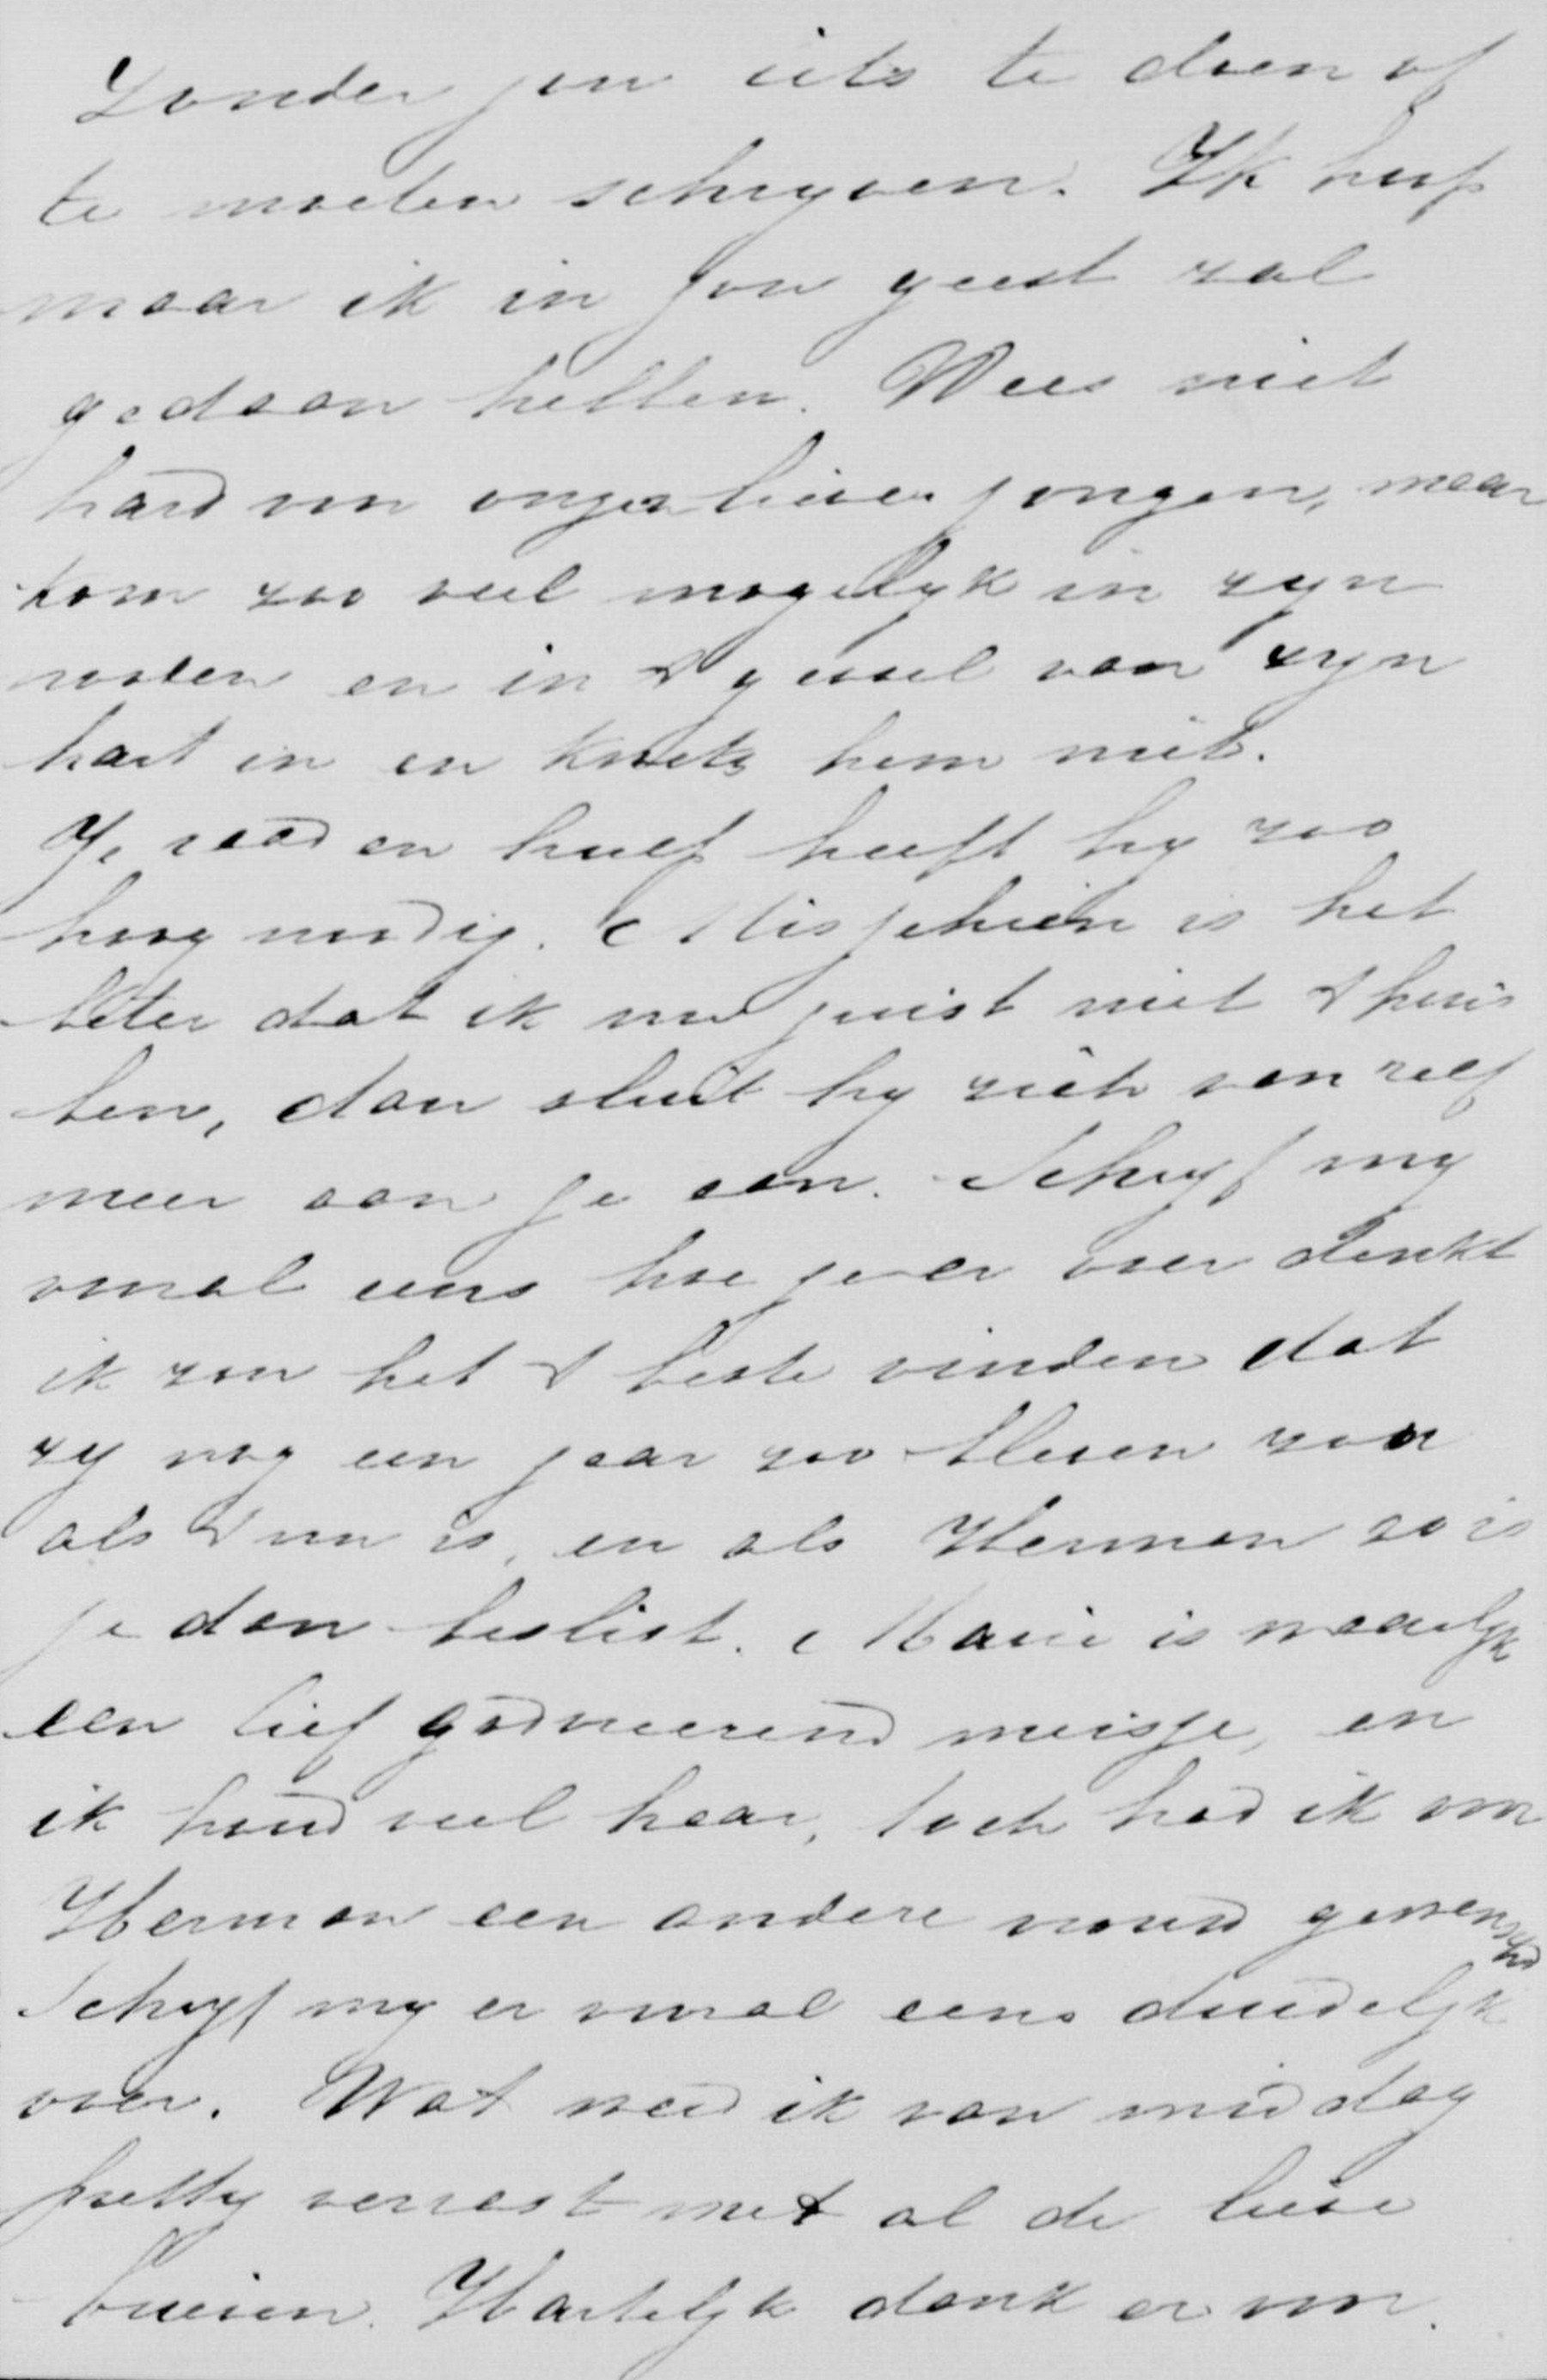 zonder jou iets te doen of
te moeten schryven. Ik hoop
maar ik in jou geest zal
gedaan hebben. Wees niet
hard voor onzen lieven jongen, maar
kom zoo veel mogelyk in zyn
nooden en in 't gevoel van zyn
hart in en knak hem niet.
Je raad en hulp heeft hy zoo
hoog noodig. Misschien is het
beter dat ik nu juist niet thuis
ben, dan sluit hy zich van zelf
meer aan je aan. Schryf my
vooral eens hoe je er over denkt
ik zou het 't beste vinden dat
zy nog een jaar zoo bleven zoo
als 't nu is, en als Herman
je dan beslist. Marie is waarlyk
een lief godvreezend meisje, en
ik houd veel haar, toch had ik voor
Herman een andere vrouw gewenscht
Schryf my er vooral eens duidelyk
over. Wat werd ik van middag
prettig verrast met al de lieve
brieven. Hartelyk dank er voor.